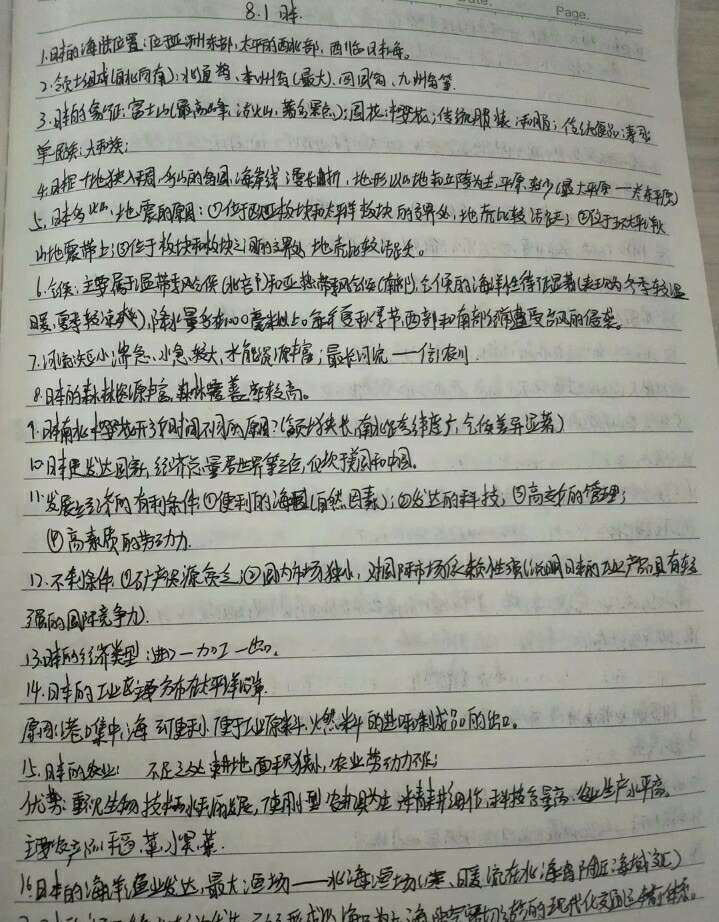 Date.
Page.
8.1 日本
1.日本的海陆位置:位于亚洲东部,太平洋西北部,西临日本海。
2.领土组成(自北向南):北海道岛、本州岛(最大)、四国岛、九州岛等
3.日本的象征:富士山(最高峰,活火山,著名景点);国花:樱花;传统服装:和服;传统食品:寿司
单一民族:大和族;
4.日本国土地狭人稠,多山的岛国,海岸线漫长曲折,地形以山地和丘陵为主,平原狭少(最大平原——关东平原)
5.日本多火山、地震的原因:①位于亚欧板块和太平洋板块的交界处,地壳比较活跃;②位于环太平洋火
山地震带上;③位于板块和板块之间的交界处,地壳比较活跃。
6.气候:主要属于温带季风气候(北部)和亚热带季风气候(南部),气候的海洋性特征显著(表现为冬季较温
暖,夏季较凉爽),降水量多在1000毫米以上。每年夏秋季节,西部和南部常遭受台风的侵袭。
7.河流短小湍急,水急较大,水能资源丰富;最长河流——信浓川
8.日本的森林资源丰富,森林覆盖率较高。
9.日本南北樱花开放时间不同的原因?(领土狭长,南北跨纬度广,气候差异显著)
10.日本是发达国家,经济总量居世界第三位,仅次于美国和中国。
11.发展经济的有利条件①便利的海运(自然因素);②发达的科技;③高效的管理;
④高素质的劳动力.
12.不利条件①矿产资源贫乏;②国内市场狭小,对国际市场依赖性强(说明日本的工业产品具有较
强的国际竞争力).
13.日本的经济类型:进口—加工—出口。
14.日本的工业区主要分布在太平洋沿岸.
原因:港口集中,海运便利,便于工业原料、燃料的进口和制成品的出口。
15.日本的农业: 不足之处:耕地面积狭小,农业劳动力不足;
优势:重视生物技术和水利的发展,使用小型农机具为主,讲精耕细作,科技含量高,农业生产水平高。
主要农产品:稻、菜、水果、菜.
16.日本的海洋渔业发达,最大渔场——北海道渔场(寒、暖流在北海道岛附近海域交汇)